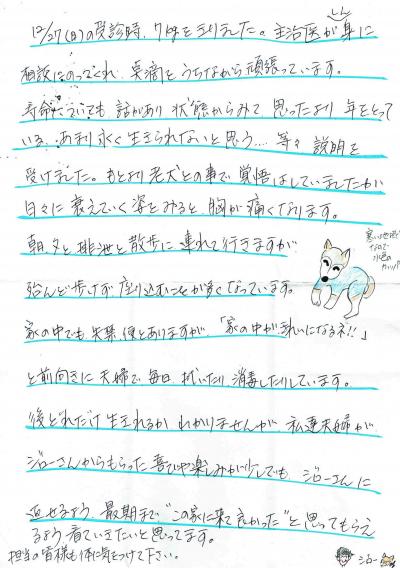 12/27(日)の受診時、7kgをきりました。主治医が親身に
しん
相談にのってくれ、点滴をうちながら頑張っています。
寿命についても話があり 状態からみて 思ったより 年をとって
いる、あまり永く生きられないと思う…等々 説明を
受けました。もとより老犬との事で覚悟はしていましたが
日々に衰えていく姿をみると、胸が痛くなります。
朝、夕と排泄と散歩に連れて行きますが
寒い地域
なので
水色の
カッパ
殆んど歩けず 座り込むことが多くなっています。
家の中でも失禁、便とありますが 「家の中が、きれいになるネ!!」
と前向きに 夫婦で 毎日、拭いたり、消毒したりしています。
後どれだけ生きれるか わかりませんが 私達夫婦が
ジローさんからもらった喜びや楽しみが少しでも ジローさんに
返せるよう、最期まで“この家に来て良かった”と思ってもらえ
るよう看ていきたいと思ってます。
担当の皆様も体に気をつけて下さい。
ジロー